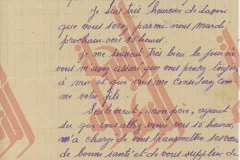 Je suis très heureux de savoir
que vous serez parmi nous mardi
prochain vers 15 heures.
Je me souviens très bien le jour où
vous m'avez assuré que vous pensez toujours
à moi et que vous me considérez comme
votre fils.
Seulement, mon père, ayant
su que vous allez venir vers 15 heures,
m'a chargé de vous transmettre
de bonne santé et de vous supplier de